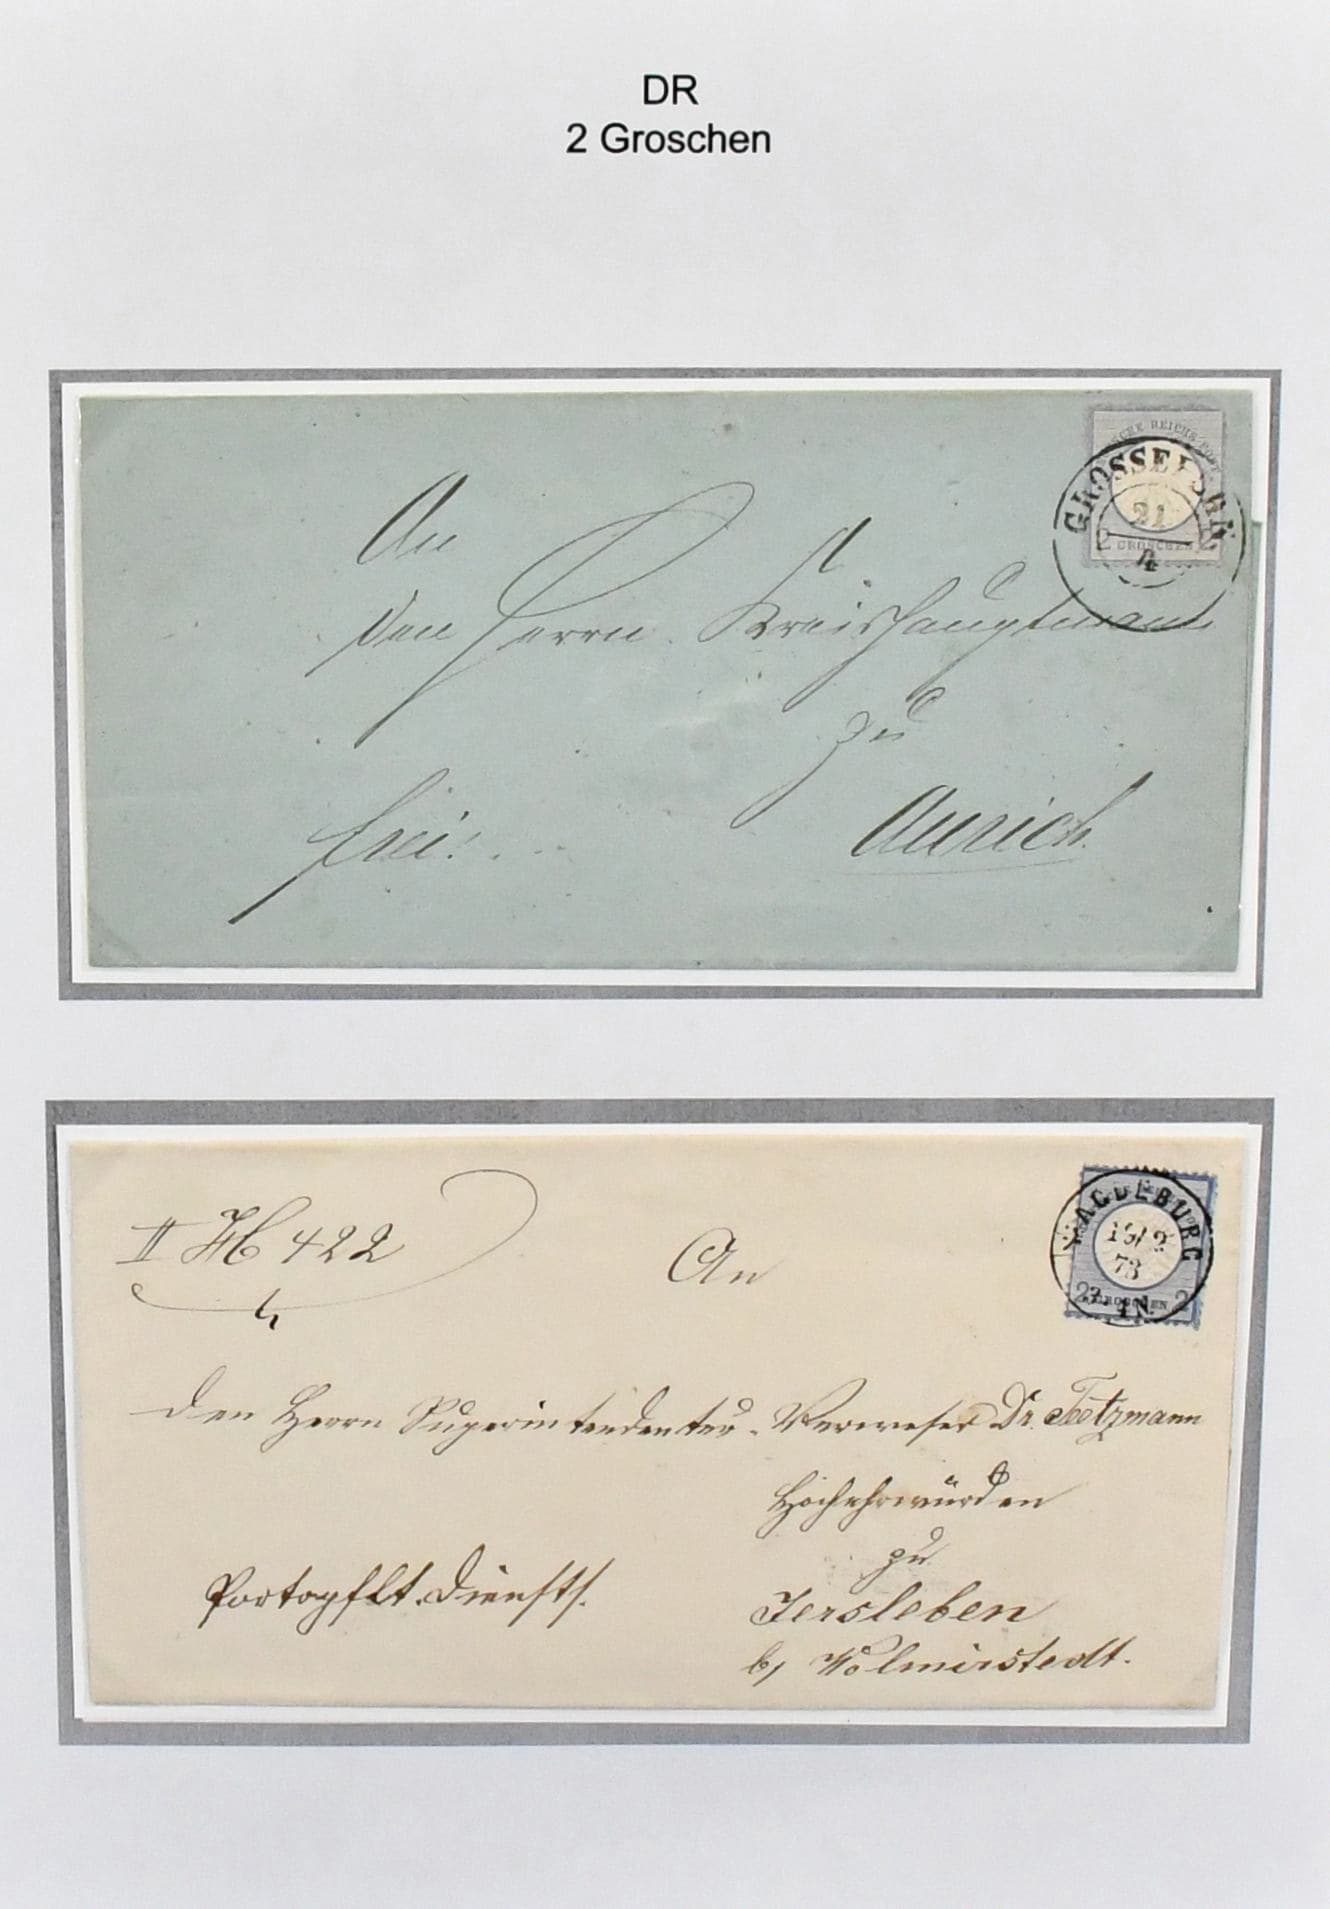 DR
2 Groschen
REICHS
GROSSEF
21
4
2 GROSCHEN 2
An
den Herrn Kreishauptmann
zu
frei.
Aurich.
MAGDEBURG
19/2
73
3-4N.
2 GROSCHEN 2
II 422
An
den Herrn Superintendentur-Verweser Dr.
Hochehrwürden
zu
Jersleben
b/ Wolmirstedt.
Portopflt. Diensts.